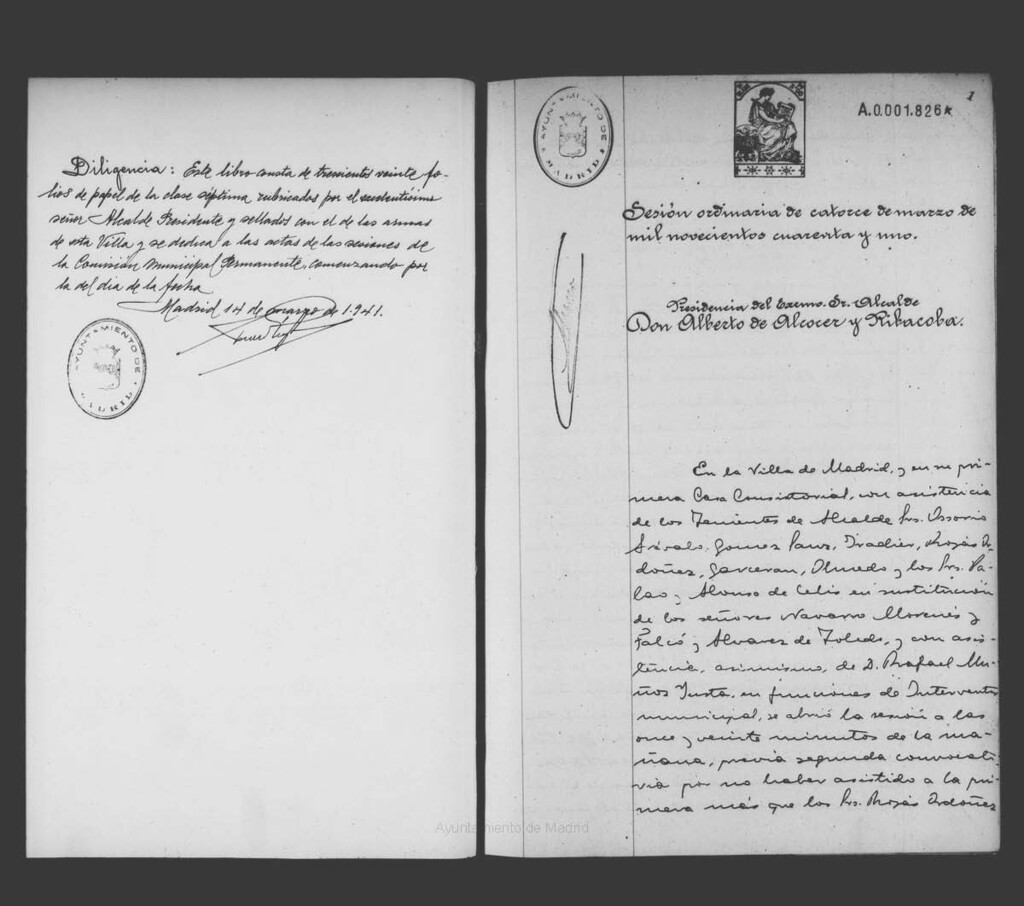 Diligencia: Este libro consta de trescientos veinte fo-
lios de papel de la clase séptima rubricados por el excelentísimo
señor Alcalde Presidente y sellados con el de las armas
de esta Villa y se dedica a las actas de las sesiones de
la Comisión Municipal Permanente, comenzando por
la del dia de la fecha
Madrid 14 de marzo de 1.941.
AYUNTAMIENTO DE
MADRID
1
AYUNTAMIENTO DE
MADRID
A.0.001.826*
Sesión ordinaria de catorce de marzo de
mil novecientos cuarenta y uno.
Presidencia del Excmo. Sr. Alcalde
Don Alberto de Alcocer y Ribacoba.
En la Villa de Madrid, y en su pri-
mera Casa Consistorial, con asistencia
de los Tenientes de Alcalde Srs. Ossorio
Arévalo, Gomez Sanz, Iradier, Rojas Or-
doñez, Garceran, Olmedo y los Srs. Pa-
lao y Alonso de Celis en sustitución
de los señores Navarro Morenés y
Falcó y Alvarez de Toledo, y con asis-
tencia, asimismo, de D. Rafael Mu-
ños Yusta, en funciones de Interventor
municipal, se abrió la sesión a las
once y veinte minutos de la ma-
ñana, previa segunda convocato-
ria por no haber asistido a la pri-
mera más que los Srs. Rojas Ordoñez
Ayuntamiento de Madrid